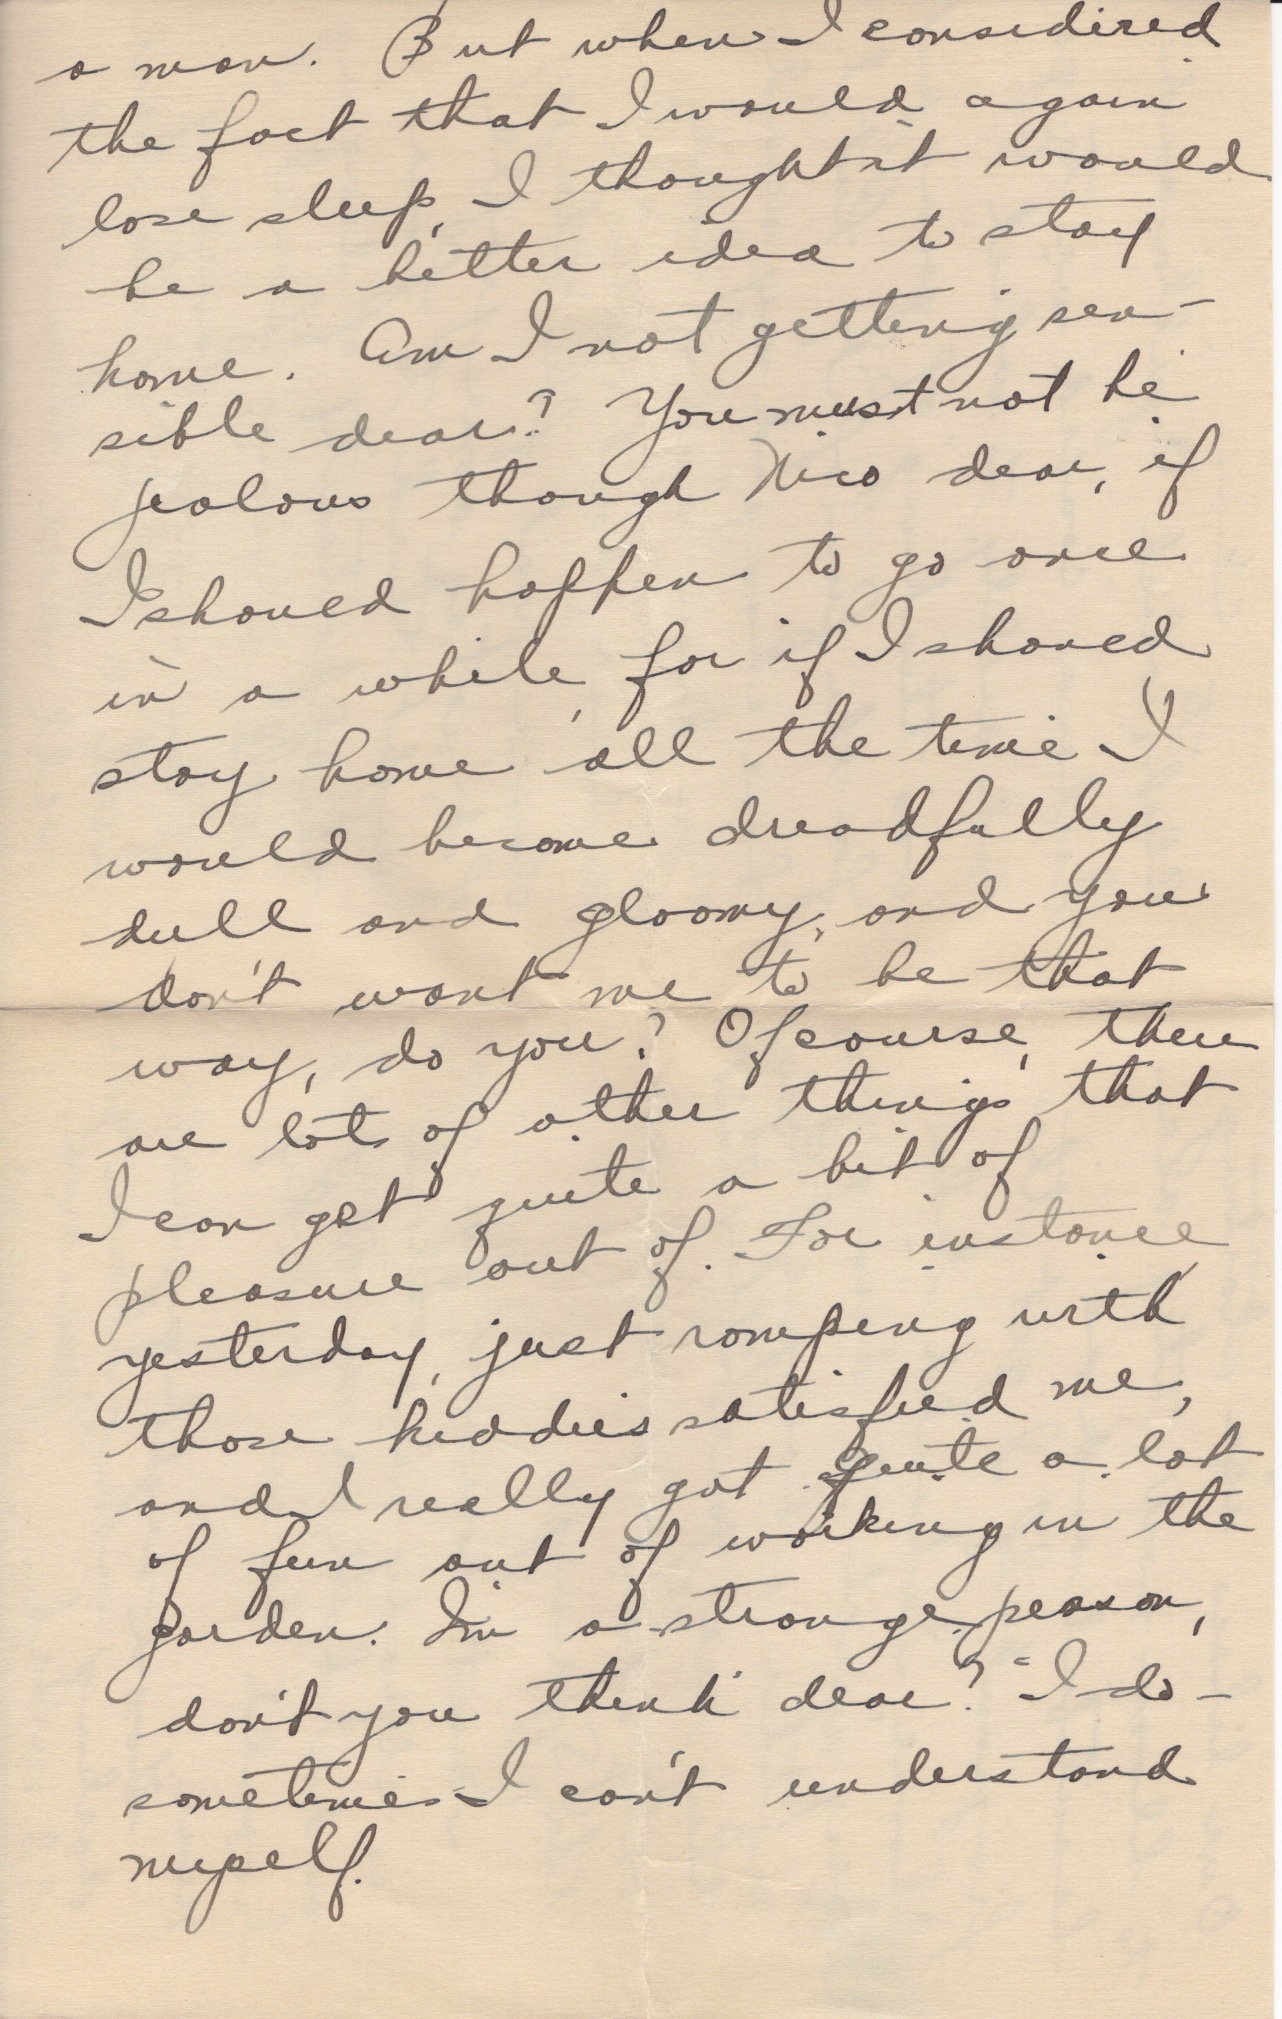 a man. But when I considered
the fact that I would again
lose sleep, I thought it would
be a better idea to stay
home. Am I not getting sen-
sible dear? You must not be
jealous though Nico dear, if
I should happen to go once
in a while, for if I should
stay home all the time I
would become dreadfully
dull and gloomy, and you
don't want me to be that
way, do you? Of course, there
are lots of other things that
I can get quite a bit of
pleasure out of. For instance,
yesterday, just romping with
those kiddies satisfied me,
and I really got quite a lot
of fun out of working in the
garden. I'm a strange person,
don't you think dear? - I do -
sometimes I can't understand
myself.